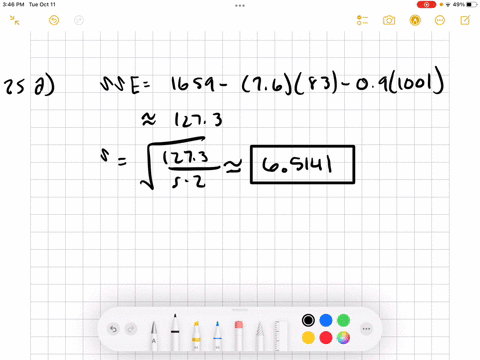 3:46 PM Tue Oct 11
49%
25 a) SSE = 1659 - (7.6)(83) - 0.9(1001)
≈ 127.3
s = √(127.3 / 5-2) ≈ 6.5141
A